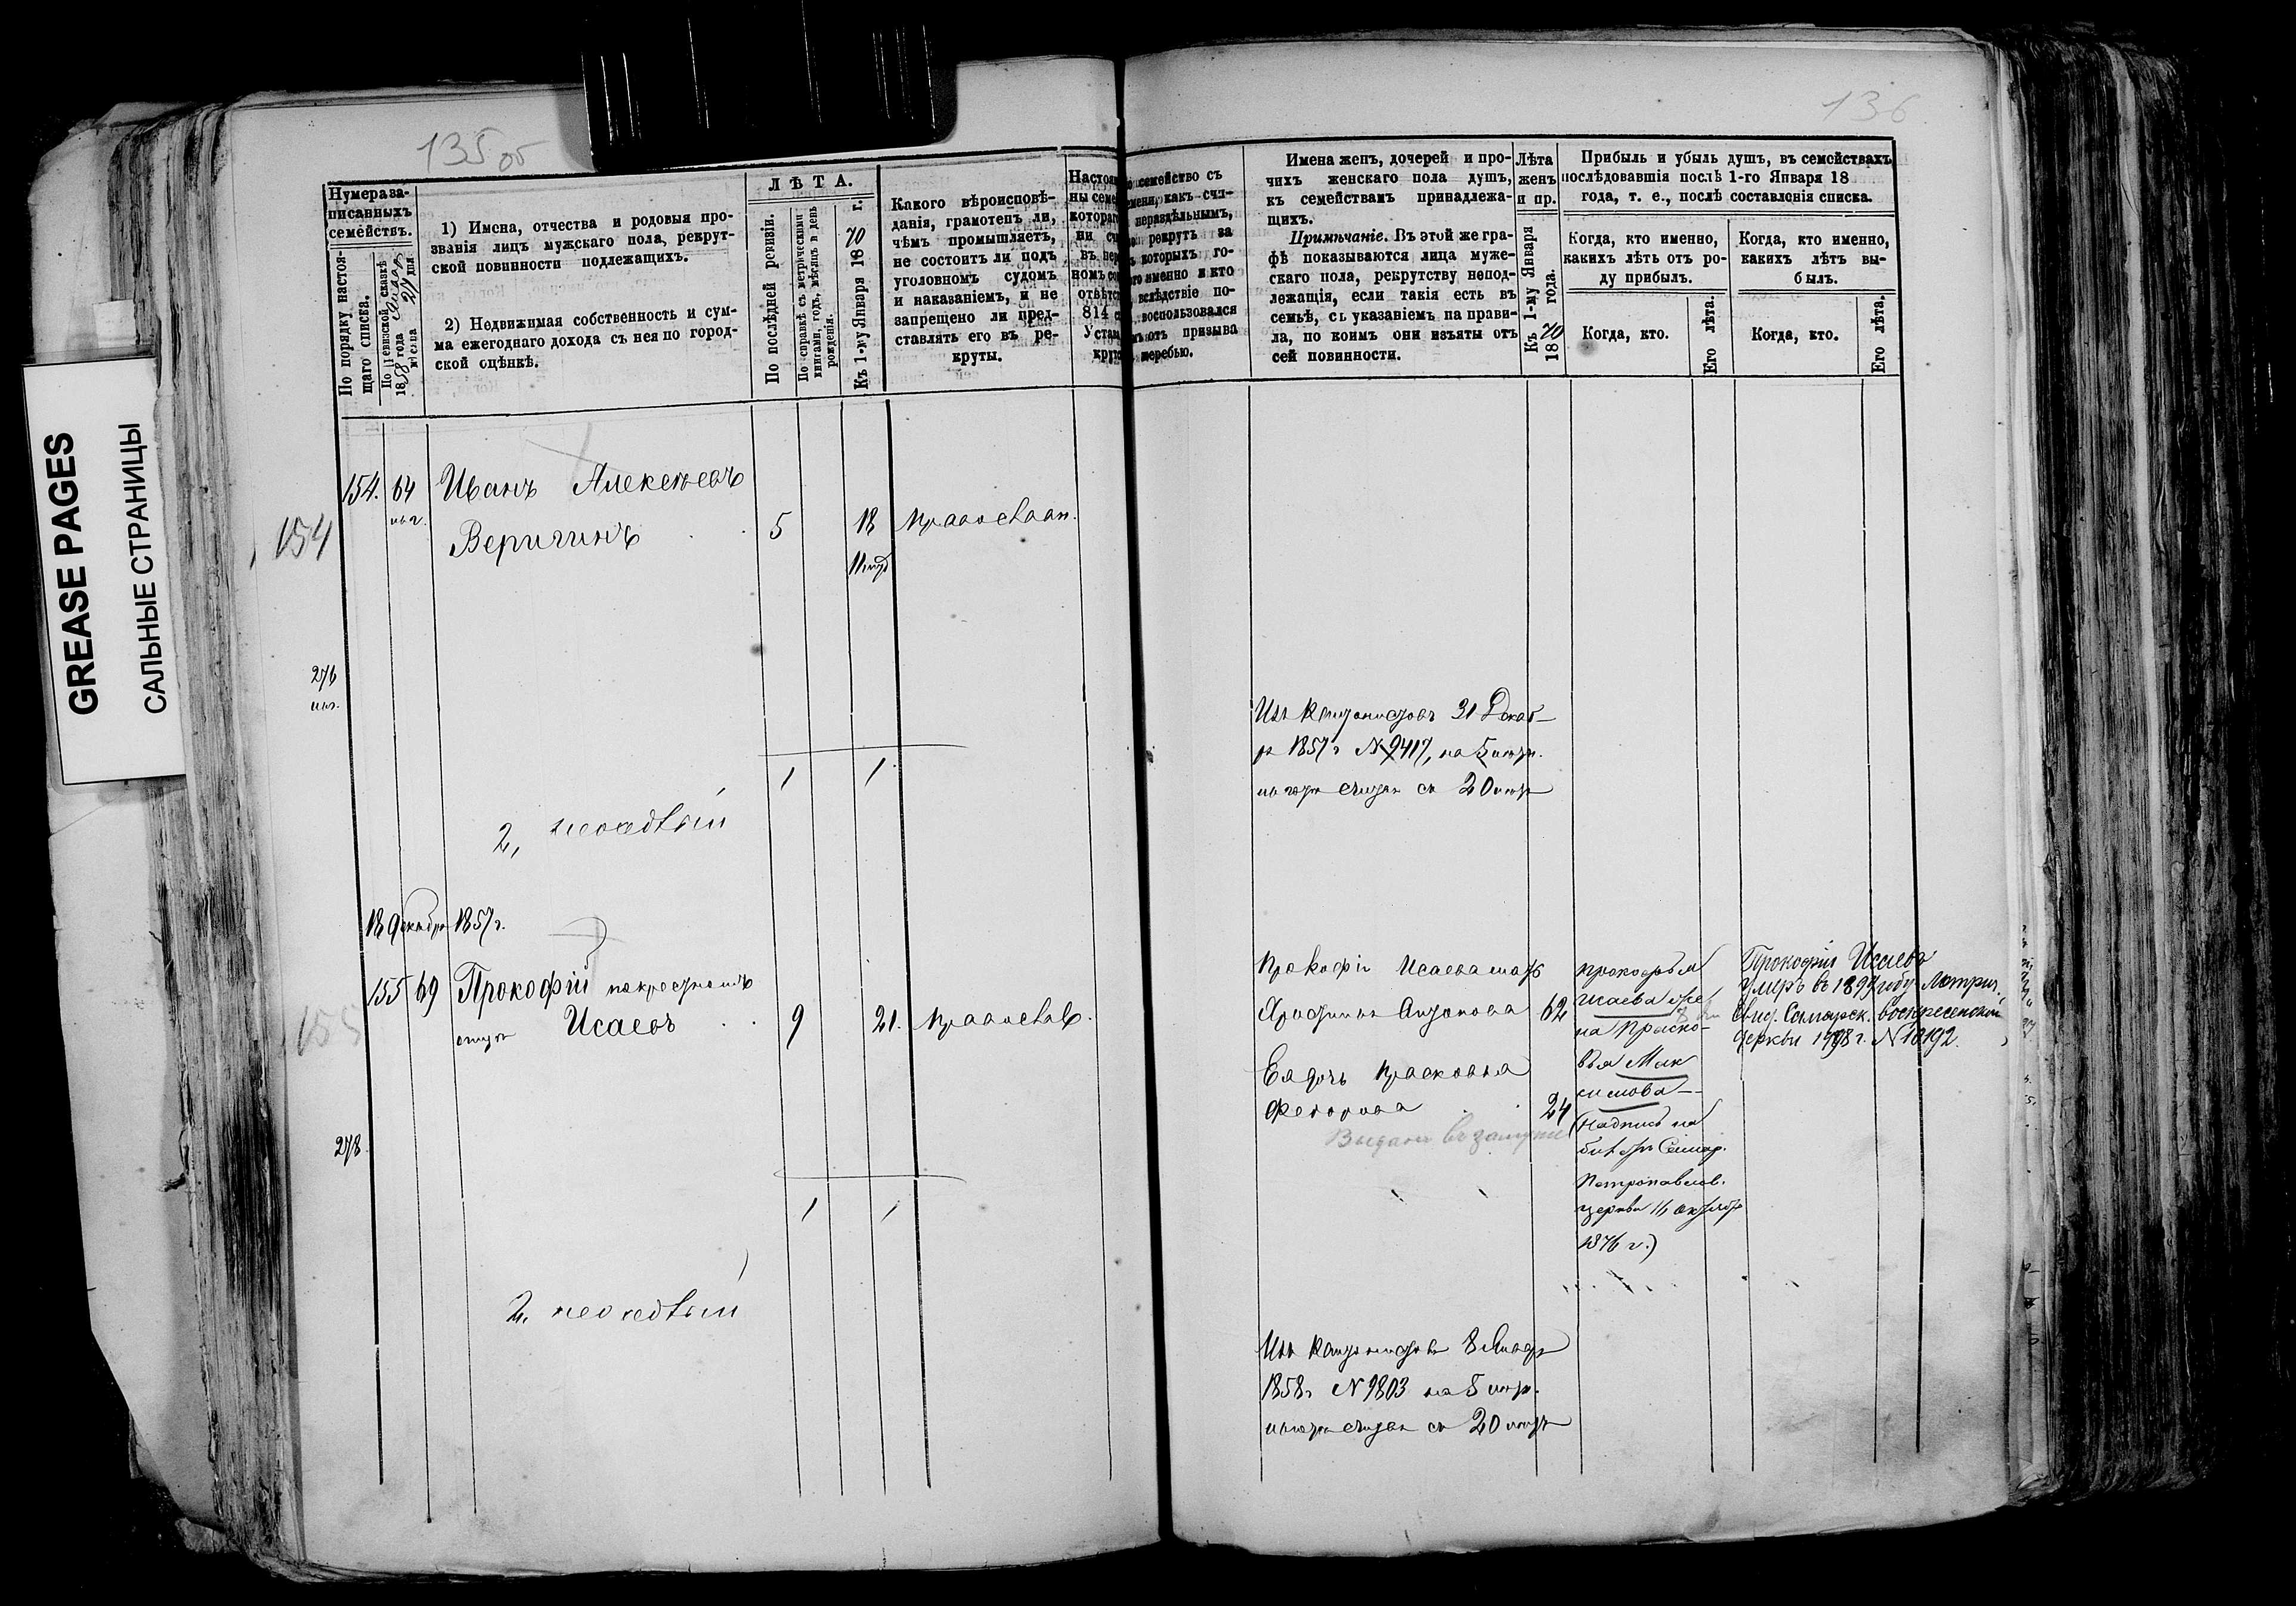 135 об
136
GREASE PAGES
САЛЬНЫЕ СТРАНИЦЫ
Нумера за-
писанныхъ
семействъ.
По порядку настоя-
щаго списка.
По ревизской сказкѣ
1858 года
мѣсяца 24 дня
1) Имена, отчества и родовыя про-
званія лицъ мужскаго пола, рекрут-
ской повинности подлежащихъ.
2) Недвижимая собственность и сум-
ма ежегоднаго дохода съ нея по город-
ской оцѣнкѣ.
ЛѢТА.
По послѣдней ревизіи.
По справкѣ съ метрическими
книгами, годъ, мѣсяцъ и день
рожденія.
Къ 1-му Января 1870 г.
Какого вѣроисповѣ-
данія, грамотенъ ли,
чѣмъ промышляетъ,
не состоитъ ли подъ
уголовнымъ судомъ
и наказаніемъ, и не
запрещено ли пред-
ставлять его въ ре-
круты.
семейство съ
какъ счи-
нераздѣльнымъ,
рекрутъ за
которыхъ го-
именно и кто
вслѣдствіе по-
воспользовался
отъ призыва
жеребью.
Имена женъ, дочерей и про-
чихъ женскаго пола душъ,
къ семействамъ принадлежа-
щихъ.
Примѣчаніе. Въ этой же гра-
фѣ показываются лица муже-
скаго пола, рекрутству непод-
лежащія, если такія есть въ
семьѣ, съ указаніемъ на прави-
ла, по коимъ они изъяты отъ
сей повинности.
Лѣта
женъ
и пр.
Къ 1-му Января
1870 года.
Прибыль и убыль душъ, въ семействахъ
послѣдовавшія послѣ 1-го Января 18
года, т. е., послѣ составленія списка.
Когда, кто именно,
какихъ лѣтъ отъ ро-
ду прибылъ.
Когда, кто именно,
какихъ лѣтъ вы-
былъ.
Когда, кто.
Его лѣта.
Когда, кто.
Его лѣта.
154. 64 Иванъ Алексѣевъ
154 Веригинъ 5 18 православн.
276
Изъ Кантонистовъ 31 Декаб-
ря 1857 г N 9417, на
считая съ 20
1 1
2,
18 декабря 1857 г.
155 69 Прокофій по крестномъ
отцѣ Исаевъ 9 21. православ.
155
Прокофія Исаева мать
Антонова 62
Ея дочь Прасковья
Федорова 24
Выдана въ замужество
Прокофья
Исаева же-
на Праско-
вья Мак
симова
(Надпись на
Самар.
Петропавлов.
церкви 16 октября
1876 г.)
Прокофій Исаевъ
умеръ въ 1897 году Метрич.
свид. Самарск. Воскресенской
церкви 1898 г. N 18192.
278
1 1
2,
Изъ Кантонистовъ 8 Января
1858 г N 9803 на 5
считая съ 20